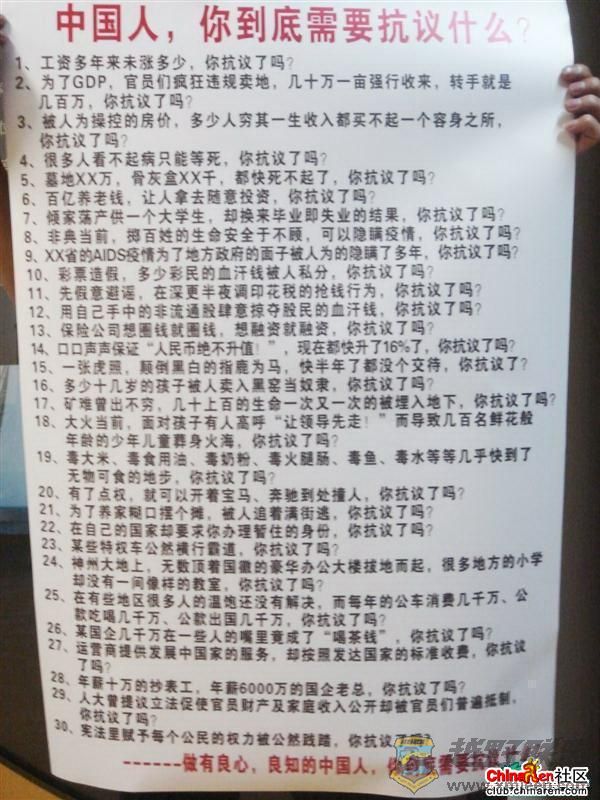 中国人，你到底需要抗议什么？
1、工资多年来未涨多少，你抗议了吗？
2、为了GDP，官员们疯狂违规卖地，几十万一亩强行收来，转手就是
几百万，你抗议了吗？
3、被人为操控的房价，多少人穷其一生收入都买不起一个容身之所，
你抗议了吗？
4、很多人看不起病只能等死，你抗议了吗？
5、墓地XX万，骨灰盒XX千，都快死不起了，你抗议了吗？
6、百亿养老钱，让人拿去随意投资，你抗议了吗？
7、倾家荡产供一个大学生，却换来毕业即失业的结果，你抗议了吗？
8、非典当前，掷百姓的生命安全于不顾，可以隐瞒疫情，你抗议了吗？
9、XX省的AIDS疫情为了地方政府的面子被人为的隐瞒了多年，你抗议了吗？
10、彩票造假，多少彩民的血汗钱被人私分，你抗议了吗？
11、先假意避谣，在深更半夜调印花税的抢钱行为，你抗议了吗？
12、用自己手中的非流通股肆意掠夺股民的血汗钱，你抗议了吗？
13、保险公司想圈钱就圈钱，想融资就融资，你抗议了吗？
14、口口声声保证“人民币绝不升值！”，现在都快升了16%了，你抗议了吗？
15、一张虎照，颠倒黑白的指鹿为马，快半年了都没个交待，你抗议了？
16、多少十几岁的孩子被人卖入黑窑当奴隶，你抗议了吗？
17、矿难曾出不穷，几十上百的生命一次又一次的被埋入地下，你抗议了吗？
18、大火当前，面对孩子有人高呼“让领导先走！”而导致几百名鲜花般
年龄的少年儿童葬身火海，你抗议了吗？
19、毒大米、毒食用油、毒奶粉、毒火腿肠、毒鱼、毒水等等几乎快到了
无物可食的地步，你抗议了吗？
20、有了点权，就可以开着宝马、奔驰到处撞人，你抗议了吗？
21、为了养家糊口摆个摊，被人追着满街逃，你抗议了吗？
22、在自己的国家却要求你办理暂住的身份，你抗议了吗？
23、某些特权车公然横行霸道，你抗议了吗？
24、神州大地上，无数顶着国徽的豪华办公大楼拔地而起，很多地方的小学
却没有一间像样的教室，你抗议了吗？
25、在有些地区很多人的温饱还没有解决，而每年的公车消费几千万、公
款吃喝几千万、公款出国几千万，你抗议了吗？
26、某国企几千万在一些人的嘴里竟成了“喝茶钱”，你抗议了吗？
27、运营商提供发展中国家的服务，却按照发达国家的标准收费，你抗议
了吗？
28、年薪十万的抄表工，年薪6000万的国企老总，你抗议了吗？
29、人大曾提议立法促使官员财产及家庭收入公开却被官员们普遍抵制，
你抗议了吗？
30、宪法里赋予每个公民的权力被公然践踏，你抗议
------做有良心，良知的中国人，你到底需要抗议
ChinaRen社区
club.chinaren.com